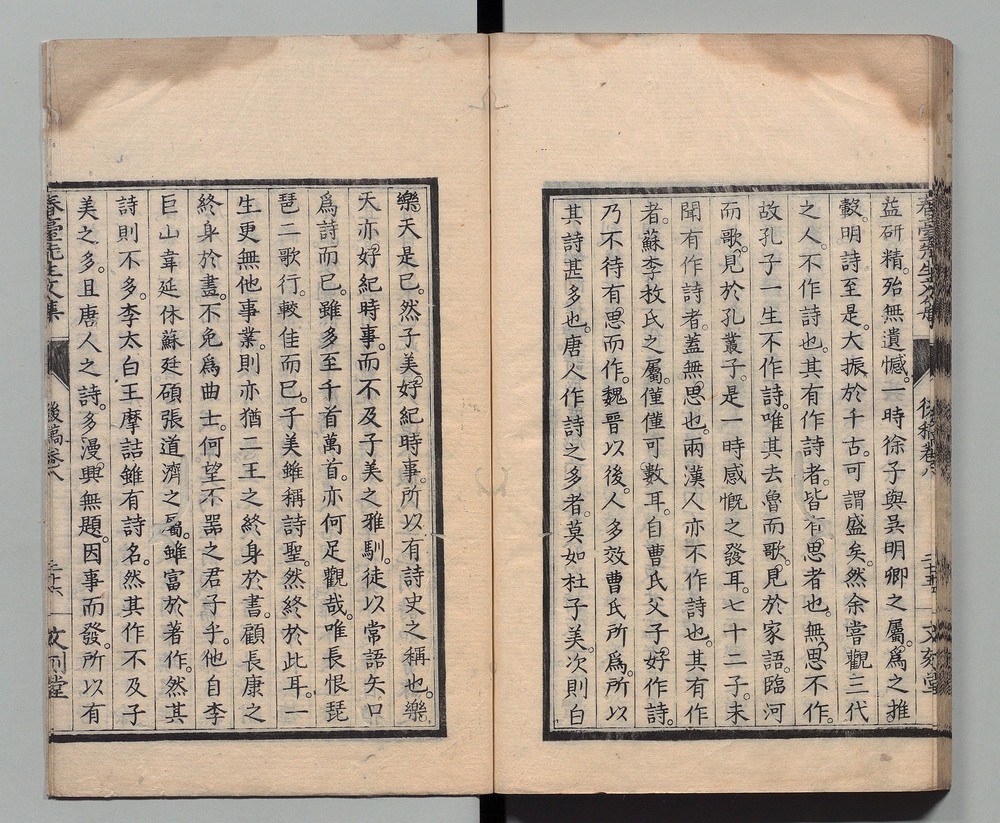 春臺先生文集
後稿卷八
三十五
文刻堂
益研精殆無遺憾一時徐子與吳明卿之屬爲之推
轂明詩至是大振於千古可謂盛矣然余嘗觀三代
之人不作詩也其有作詩者皆有思者也無思不作
故孔子一生不作詩唯其去魯而歌見於家語臨河
而歌見於孔叢子是一時感慨之發耳七十二子未
聞有作詩者蓋無思也兩漢人亦不作詩也其有作
者蘇李枚氏之屬僅僅可數耳自曹氏父子好作詩
乃不待有思而作魏晋以後人多效曹氏所爲所以
其詩甚多也唐人作詩之多者莫如杜子美次則白
樂天是已然子美好紀時事所以有詩史之稱也樂
天亦好紀時事而不及子美之雅馴徒以常語矢口
爲詩而已雖多至千首萬首亦何足觀哉唯長恨琵
琶二歌行較佳而已子美雖稱詩聖然終於此耳一
生更無他事業則亦猶二王之終身於書顧長康之
終身於畫不免爲曲士何望不器之君子乎他自李
巨山韋延休蘇廷碩張道濟之屬雖富於著作然其
詩則不多李太白王摩詰雖有詩名然其作不及子
美之多且唐人之詩多漫興無題因事而發所以有
春臺先生文集
後稿卷八
三十六
文刻堂